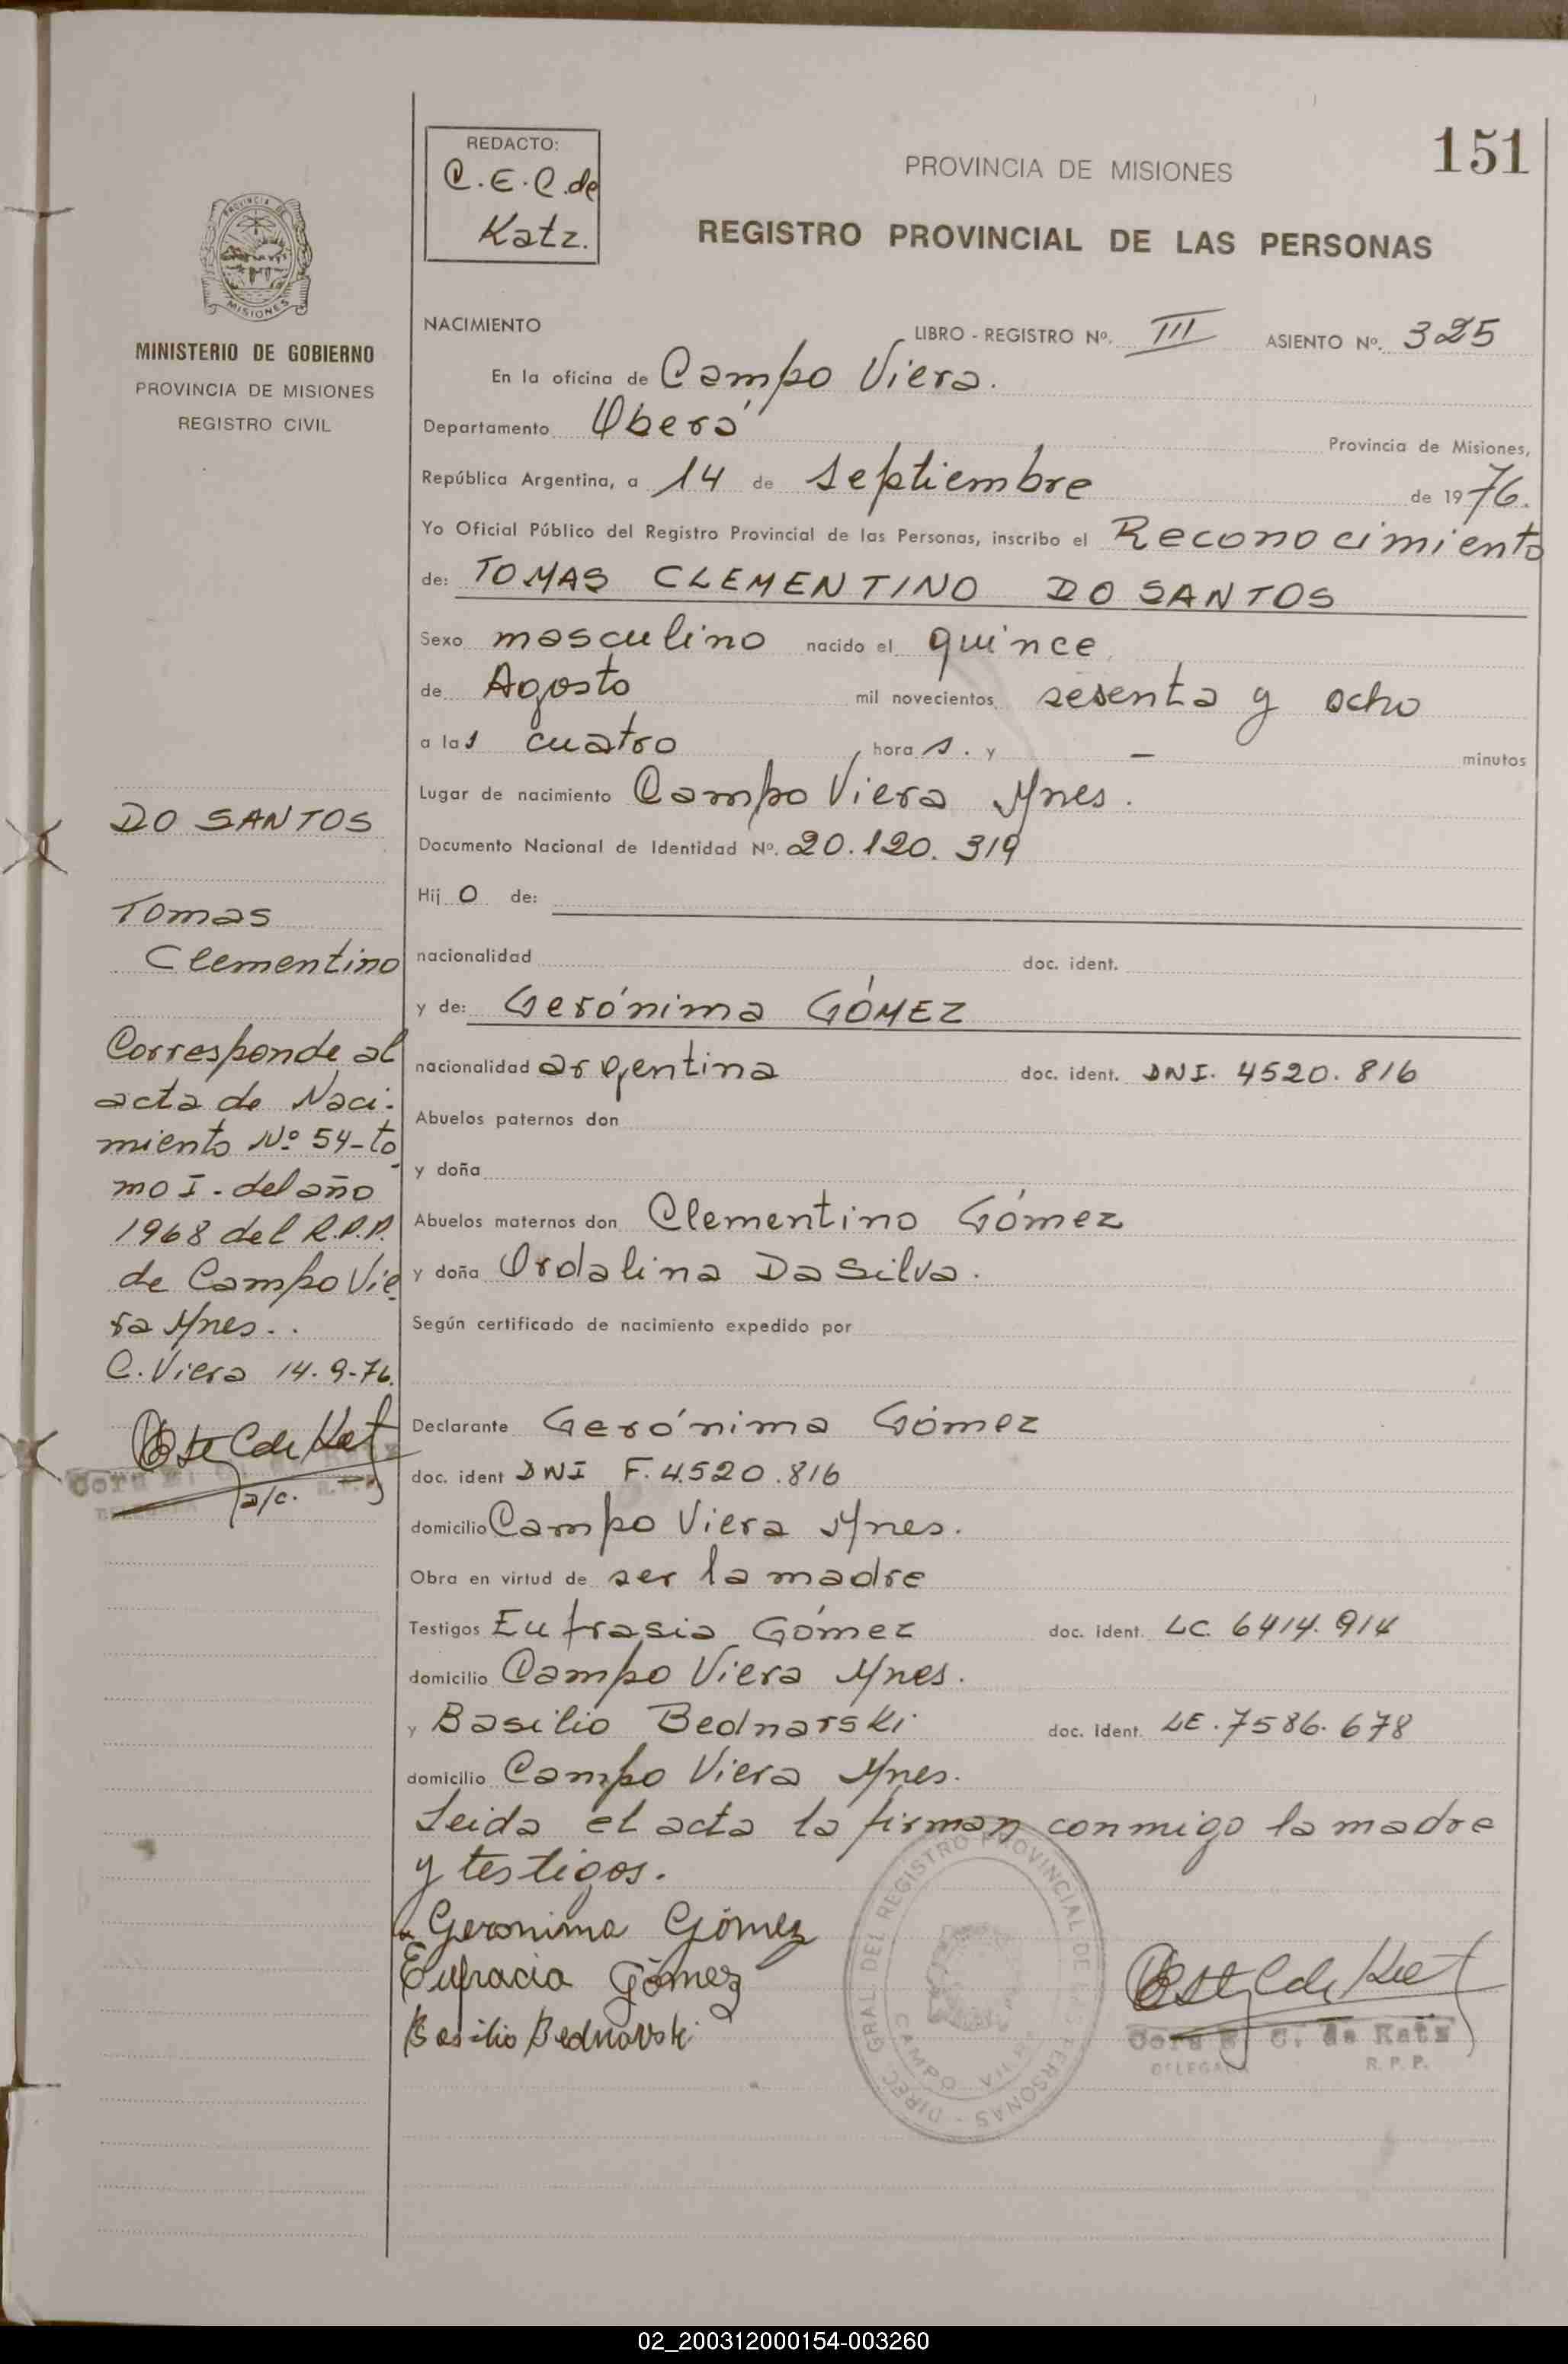 151
REDACTO:
C.E.C. de
Katz.
PROVINCIA DE MISIONES
REGISTRO PROVINCIAL DE LAS PERSONAS
PROVINCIA DE
MISIONES
MINISTERIO DE GOBIERNO
PROVINCIA DE MISIONES
REGISTRO CIVIL
NACIMIENTO
LIBRO - REGISTRO Nº. III ASIENTO Nº. 325
En la oficina de Campo Viera.
Departamento Oberá Provincia de Misiones,
República Argentina, a 14 de septiembre de 1976.
Yo Oficial Público del Registro Provincial de las Personas, inscribo el Reconocimiento
de: TOMAS CLEMENTINO DO SANTOS
Sexo masculino nacido el quince
de Agosto mil novecientos sesenta y ocho
a las cuatro horas. y — minutos
Lugar de nacimiento Campo Viera Mnes.
Documento Nacional de Identidad Nº. 20.120.319
Hijo de:
nacionalidad doc. ident.
y de: Gerónima GÓMEZ
nacionalidad argentina doc. ident. DNI. 4520.816
Abuelos paternos don
y doña
Abuelos maternos don Clementino Gómez
y doña Ordalina Da Silva.
Según certificado de nacimiento expedido por
Declarante Gerónima Gómez
doc. ident DNI F. 4520.816
domicilio Campo Viera Mnes.
Obra en virtud de ser la madre
Testigos Eufrasia Gómez doc. ident. LC. 6414.914
domicilio Campo Viera Mnes.
y Basilio Bednarski doc. ident. LE. 7586.678
domicilio Campo Viera Mnes.
Leida el acta la firman conmigo la madre
y testigos.
Geronima Gómez
Eufracia Gómez
Basilio Bednarski
DIREC GRAL DEL REGISTRO PROVINCIAL DE LAS PERSONAS -
CAMPO VIERA
Cora E. C. de Katz
DELEGADA
R. P. P.
DO SANTOS
Tomas
Clementino
Corresponde al
acta de Naci-
miento Nº 54-to
mo I. del año
1968 del R.P.P.
de Campo Vie
ra Mnes..
C. Viera 14.9.76.
a/c.
02_200312000154-003260